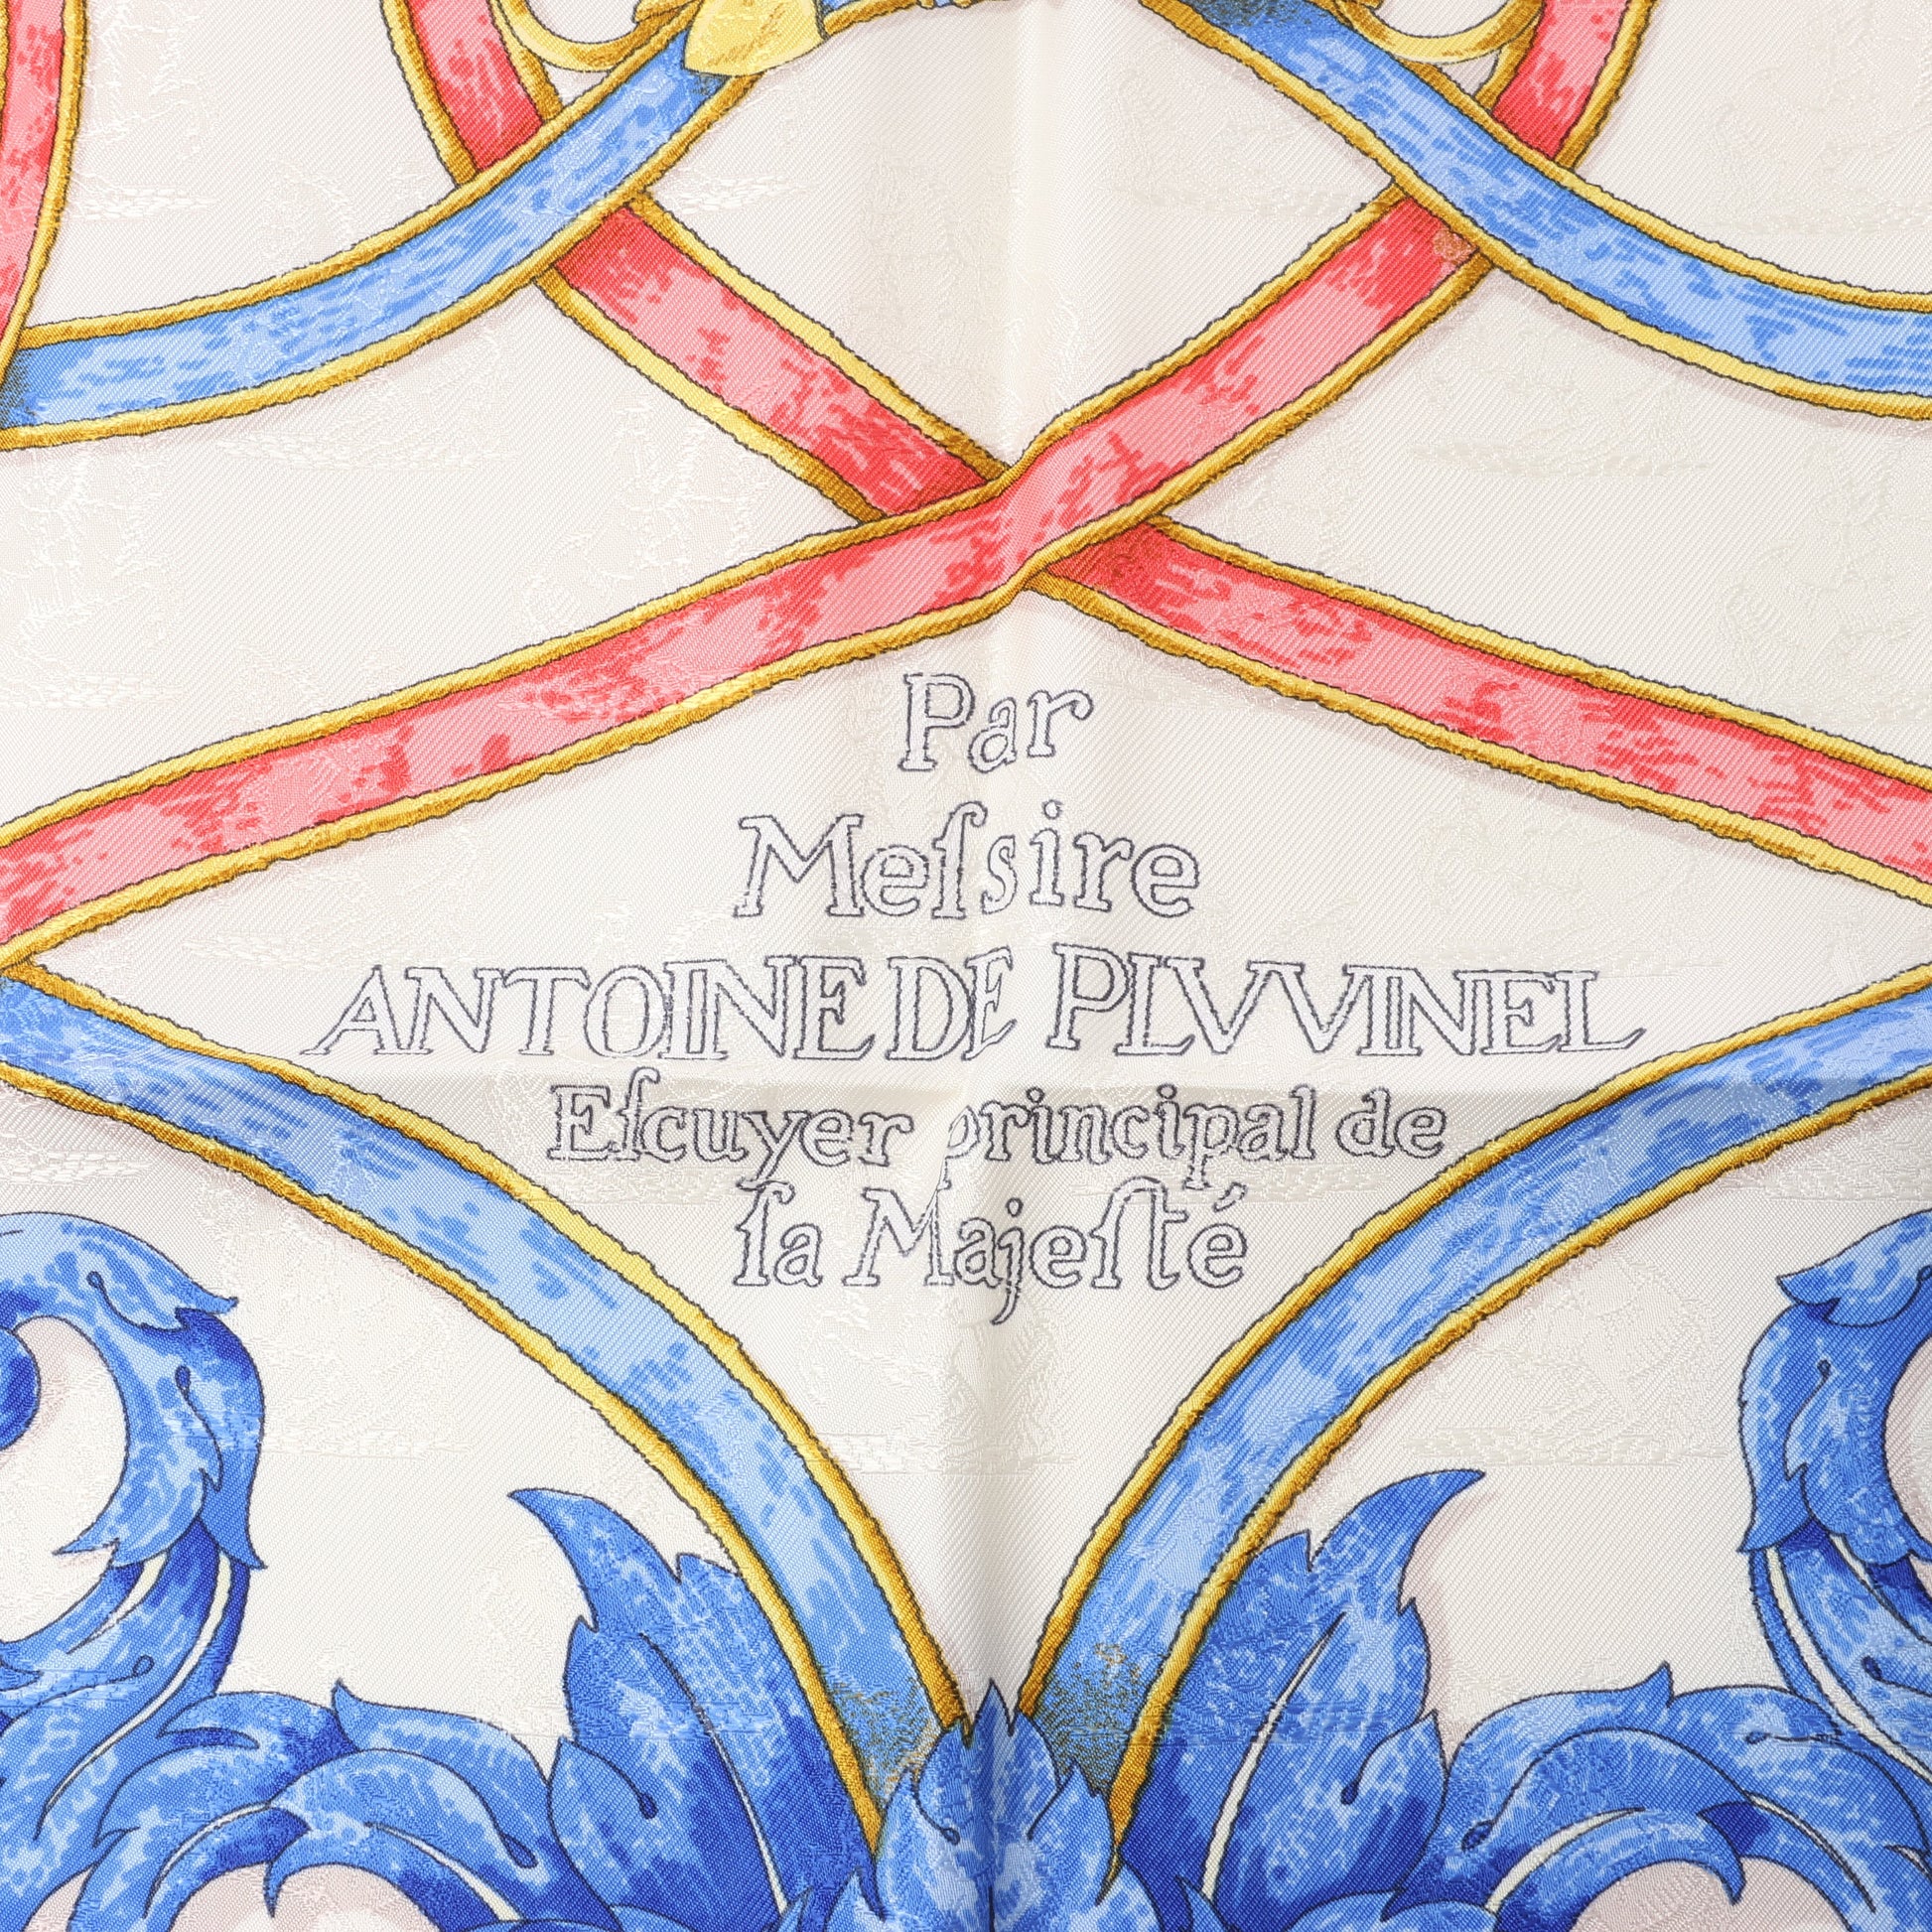 Par
Meſsire
ANTOINE DE PLVVINEL
Eſcuyer principal de
ſa Majeſté